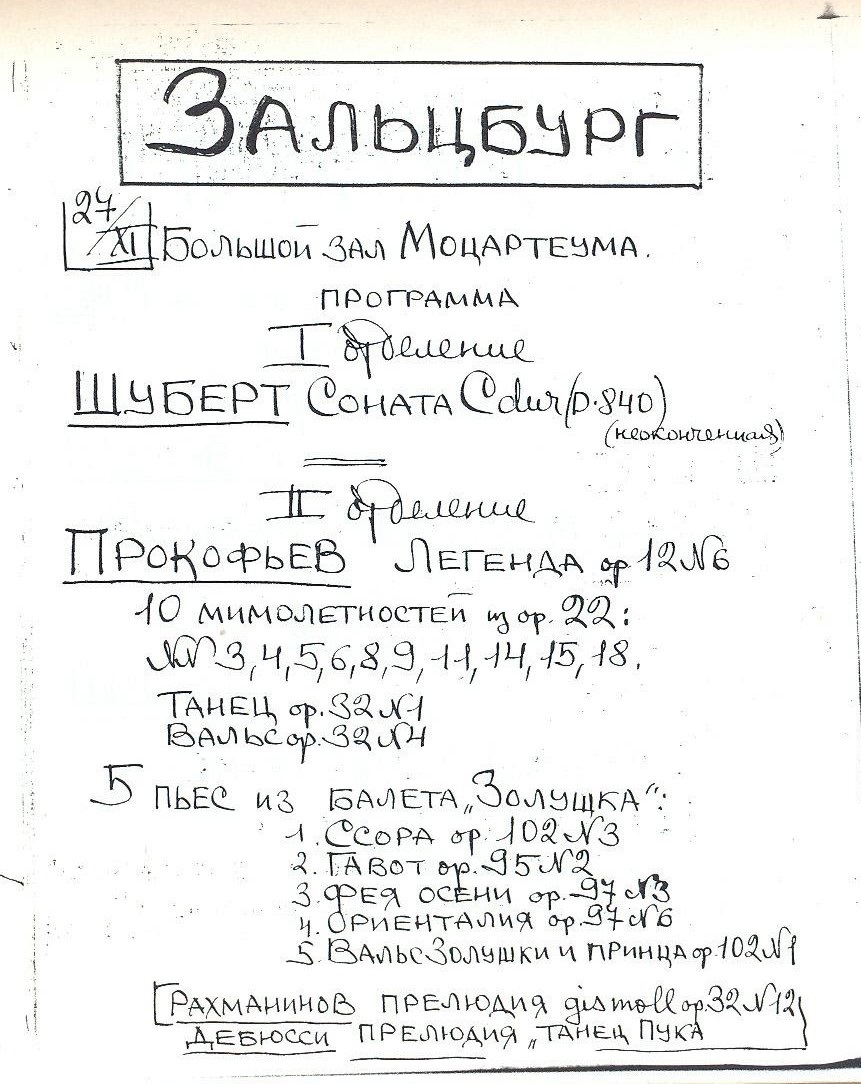 Зальцбург
27/XI Большой зал Моцартеума.
программа
I отделение
Шуберт Соната C dur (D.840)
(неоконченная)
II отделение
Прокофьев Легенда op 12 N6
10 мимолетностей из op. 22:
NN 3, 4, 5, 6, 8, 9, 11, 14, 15, 18.
Танец op. 32 N1
Вальс op. 32 N4
5 пьес из балета „Золушка“:
1. Ссора op. 102 N3
2. Гавот op. 95 N2
3. Фея осени op. 97 N3
4. Ориенталия op. 97 N6
5. Вальс Золушки и принца op. 102 N1
[Рахманинов прелюдия gis moll op. 32 N12
Дебюсси прелюдия „Танец Пука